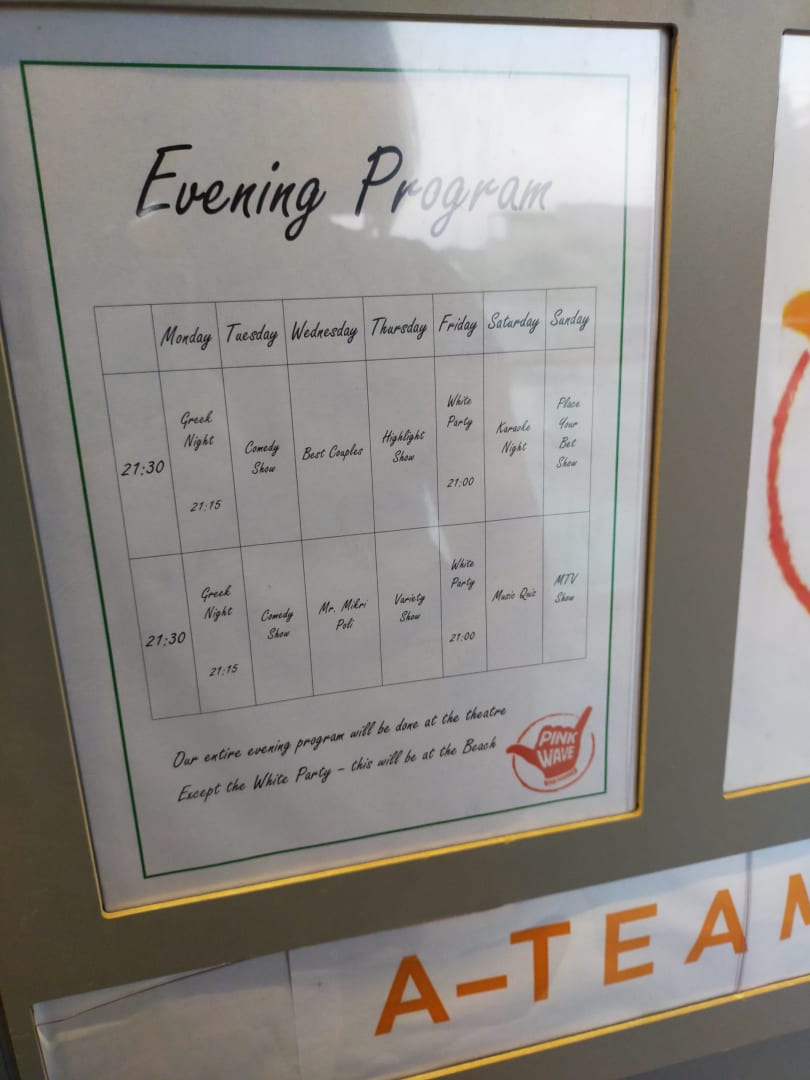 Evening Program
Monday Tuesday Wednesday Thursday Friday Saturday Sunday
21:30
Greek
Night
21:15
Comedy
Show
Best Couples
Highlight
Show
White
Party
21:00
Karaoke
Night
Place
Your
Bet
Show
21:30
Greek
Night
21:15
Comedy
Show
Mr. Mikri
Poli
Variety
Show
White
Party
21:00
Music Quiz
MTV
Show
Our entire evening program will be done at the theatre
Except the White Party – this will be at the Beach
PINK
WAVE
A-TEAM